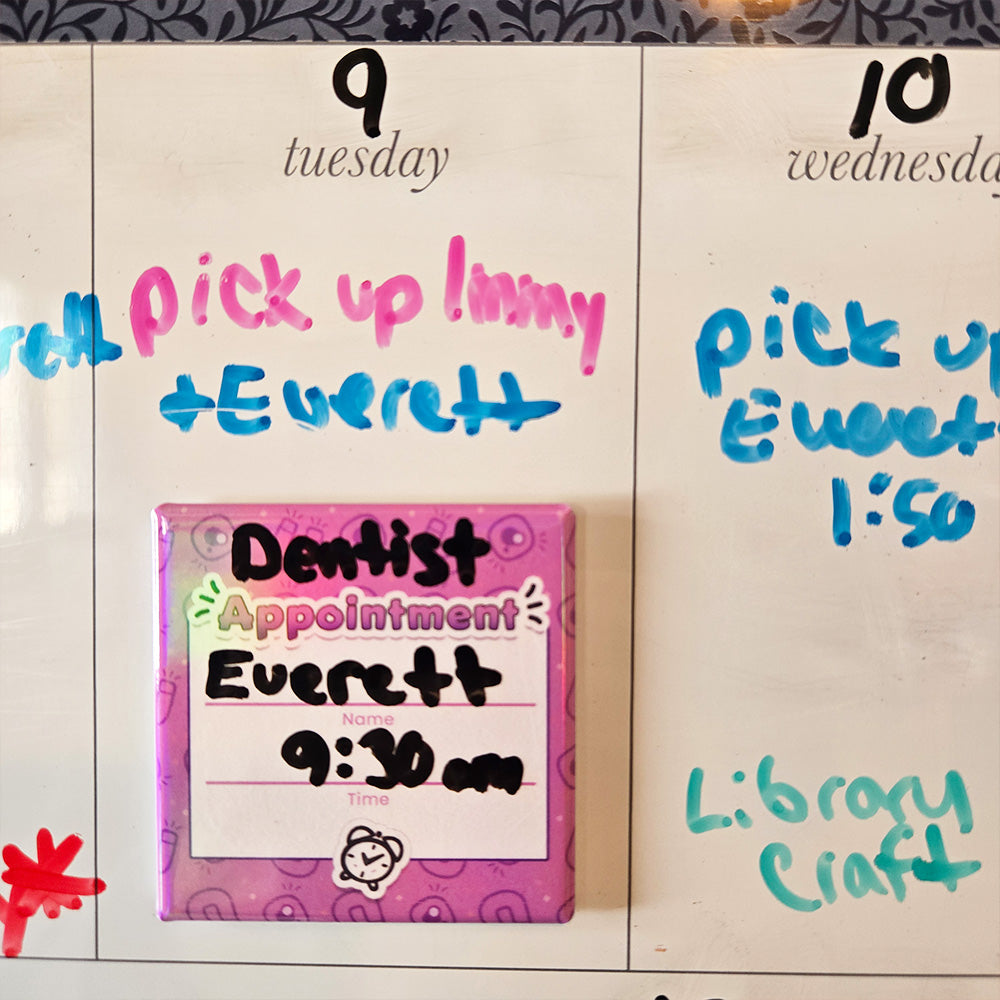 9
tuesday
pick up Immy
+Everett
Dentist
Appointment
Everett
Name
9:30 am
Time
10
wednesda
pick up
Everett
1:50
Library
Craft
rett